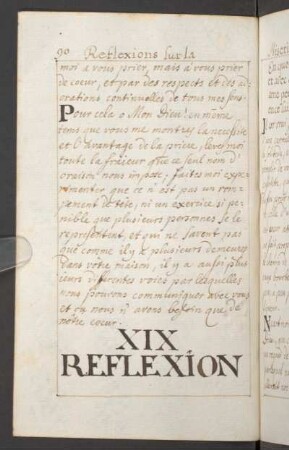 90 Reflexions sur la
moi a vous prier, mais a vous prier
de cœur, et par des respects et des ad
orations continuelles de tous mes sens.
Pour cela o Mon Dieu! en même
tems que vous me montrez la necessité
et l'Avantage de la priere, levez moi
toute la fraieur que ce seul nom d'
oraison nous imp; faites moi expe
rimenter que ce n'est pas un rom
pement de tête, ni un exercice si pe
nible que plusieurs personnes se le
representent, et qui ne savent pas
que comme il y a plusieurs demeures
dans votre maison, il y a aussi plusi
eurs differentes voies par lesquelles
nous pouvons communiquer avec vous
et ou nous n'avons besoin que de
nôtre cœur.
XIX
REFLEXION